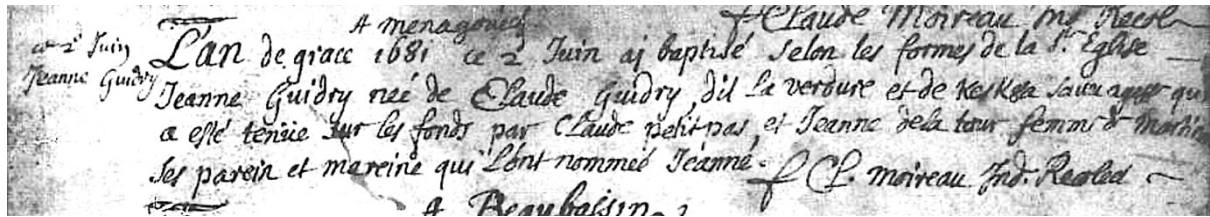 f Claude Moireau Ind. Recol
A menagouëch
ce 2e Juin
Jeanne Guidry
L'an de grace 1681 ce 2 Juin aj baptisé selon les formes de la Ste Eglise
Jeanne Guidry neé de Claude Guidry, dit la verdure et de Keskoa sauuagesse qui
a esté tenüe sur les fonds par Claude petitpas, et Jeanne dela tour femme de Martin
ses parein et mareine qui l'ont nommeé Jeanne.
f Cl. moireau Ind. Recolect
A Beaubassin